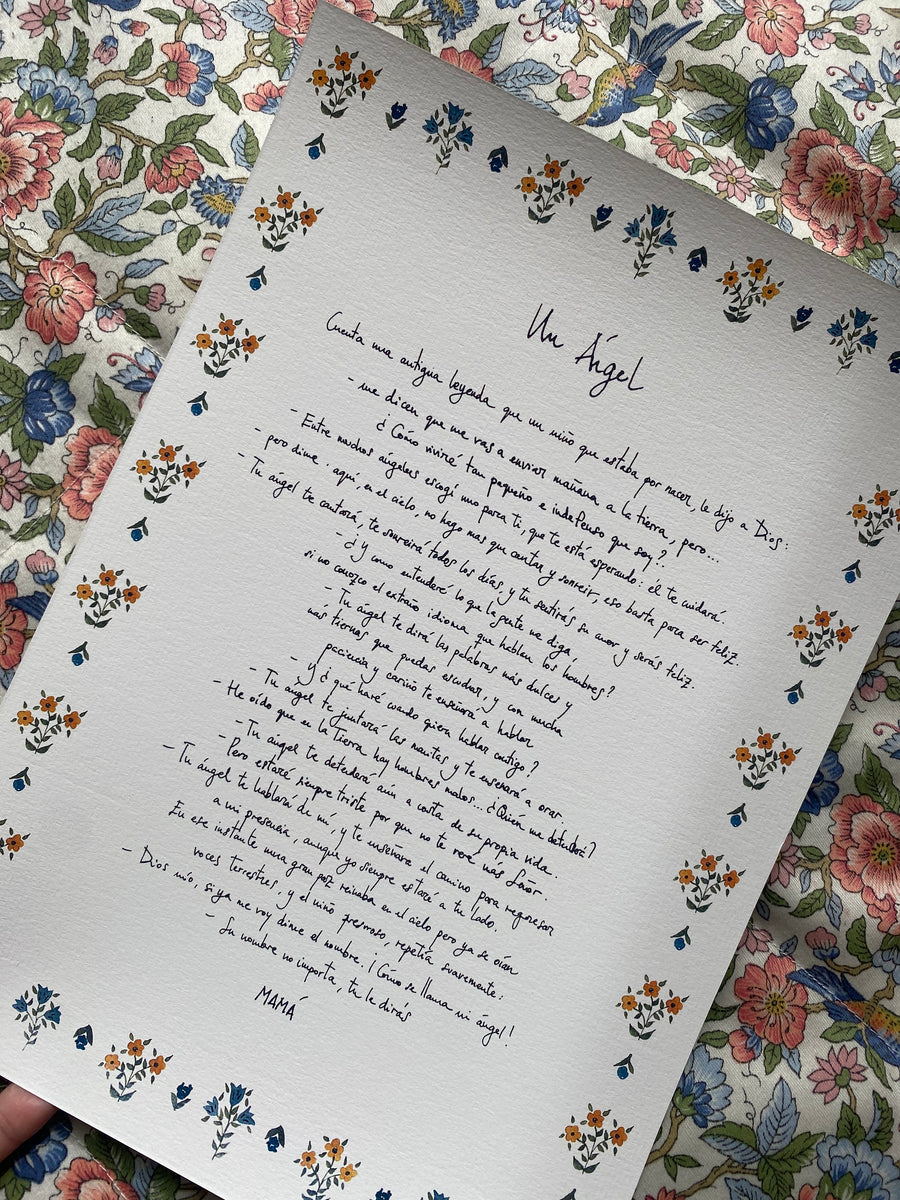 Un Ángel
Cuenta una antigua leyenda que un niño que estaba por nacer, le dijo a Dios:
- me dicen que me vas a enviar mañana a la tierra, pero...
¿Cómo viviré tan pequeño e indefenso que soy?.
- Entre muchos ángeles escogí uno para ti, que te está esperando: él te cuidará.
- pero dime. aquí, en el cielo, no hago mas que cantar y sonreir, eso basta para ser feliz.
- Tu ángel te cantará, te sonreirá todos los días, y tu sentirás su amor y serás feliz.
- ¿y como entenderé lo que la gente me diga,
si no conozco el extraño idioma que hablan los hombres?
- Tu ángel te dirá las palabras más dulces y
más tiernas que puedas escuchar, y con mucha
paciencia y cariño te enseñará a hablar
- Y ¿qué haré cuando quiera hablar contigo?
- Tu angel te juntará las manitas y te enseñará a orar.
- He oído que en la Tierra hay hombres malos... ¿Quién me defenderá?
- Tu ángel te defenderá aún a costa de su propia vida.
- Pero estaré siempre triste por que no te veré más Señor.
- Tu ángel te hablará de mí, y te enseñará el camino para regresar
a mi presencia, aunque yo siempre estaré a tu lado.
En ese instante una gran paz reinaba en el cielo pero ya se oían
voces terrestres, y el niño presuroso, repetía suavemente:
- Dios mío, si ya me voy dime el nombre. ¡Cómo se llama mi ángel!
- Su nombre no importa, tu le dirás
MAMÁ